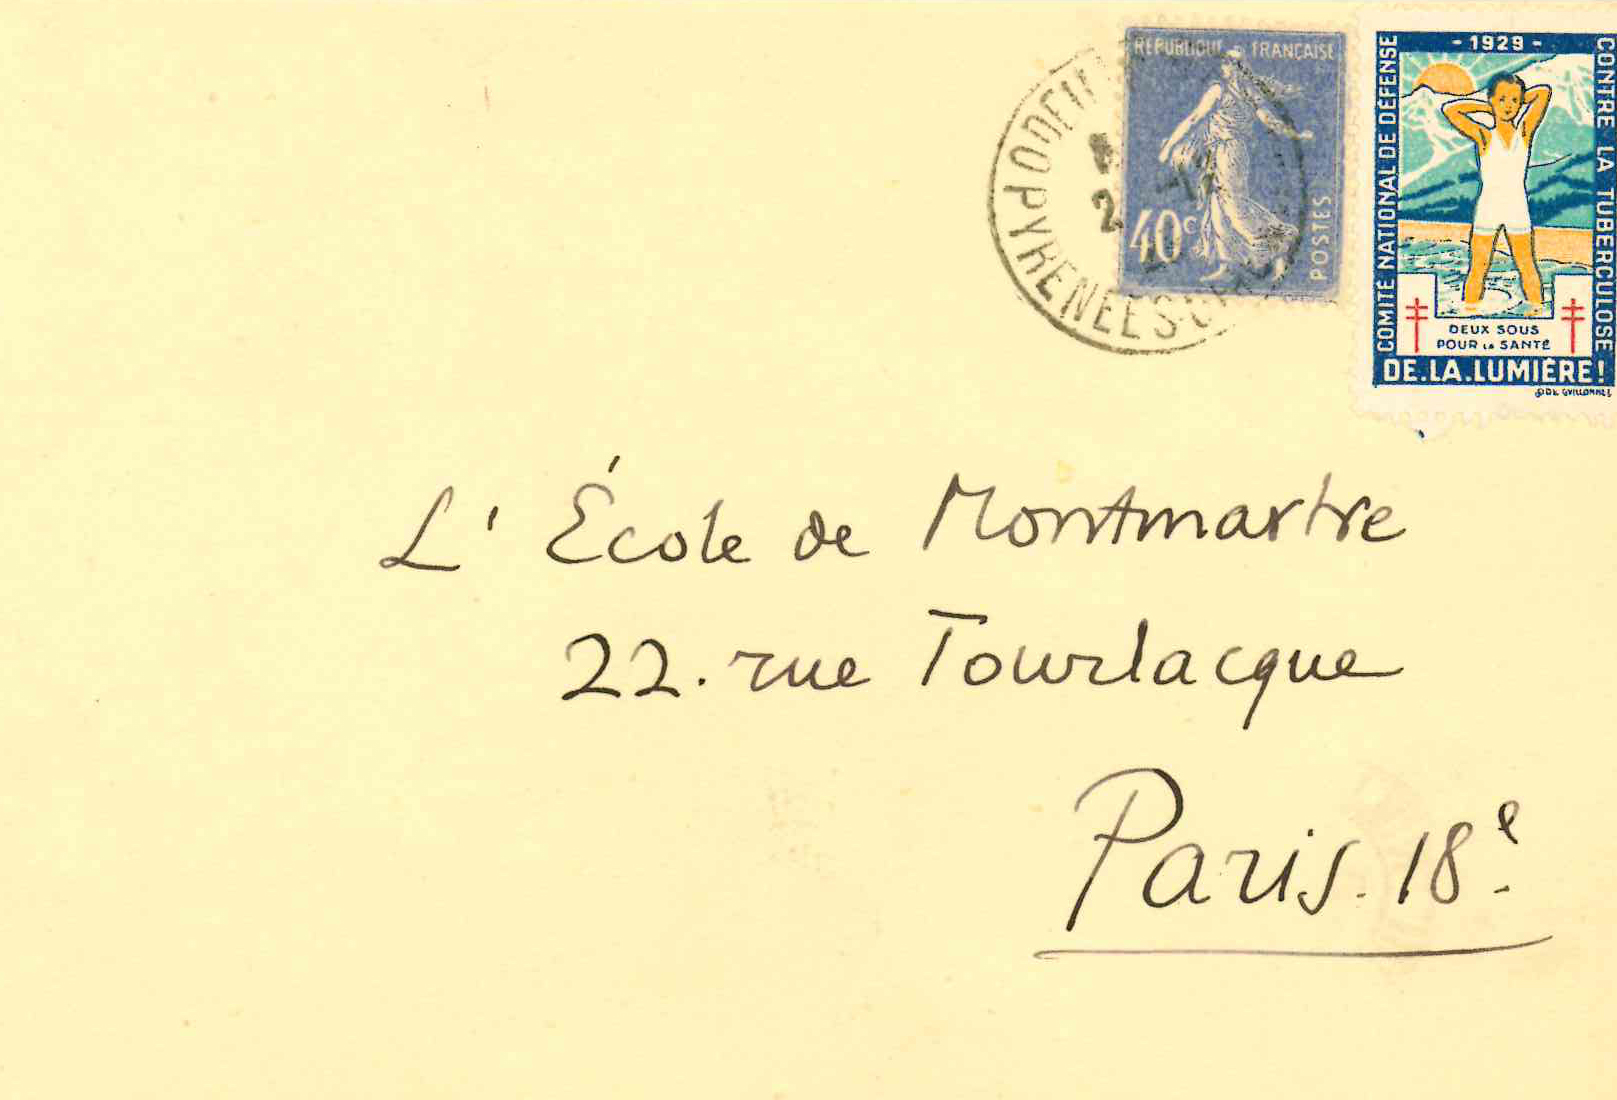 REPUBLIQUE FRANÇAISE
40c
POSTES
PYRENÉES
- 1929 -
COMITÉ NATIONAL DE DÉFENSE
CONTRE LA TUBERCULOSE
DEUX SOUS
POUR LA SANTÉ
DE.LA.LUMIÈRE!
L' École de Montmartre
22. rue Tourlacque
Paris. 18e.